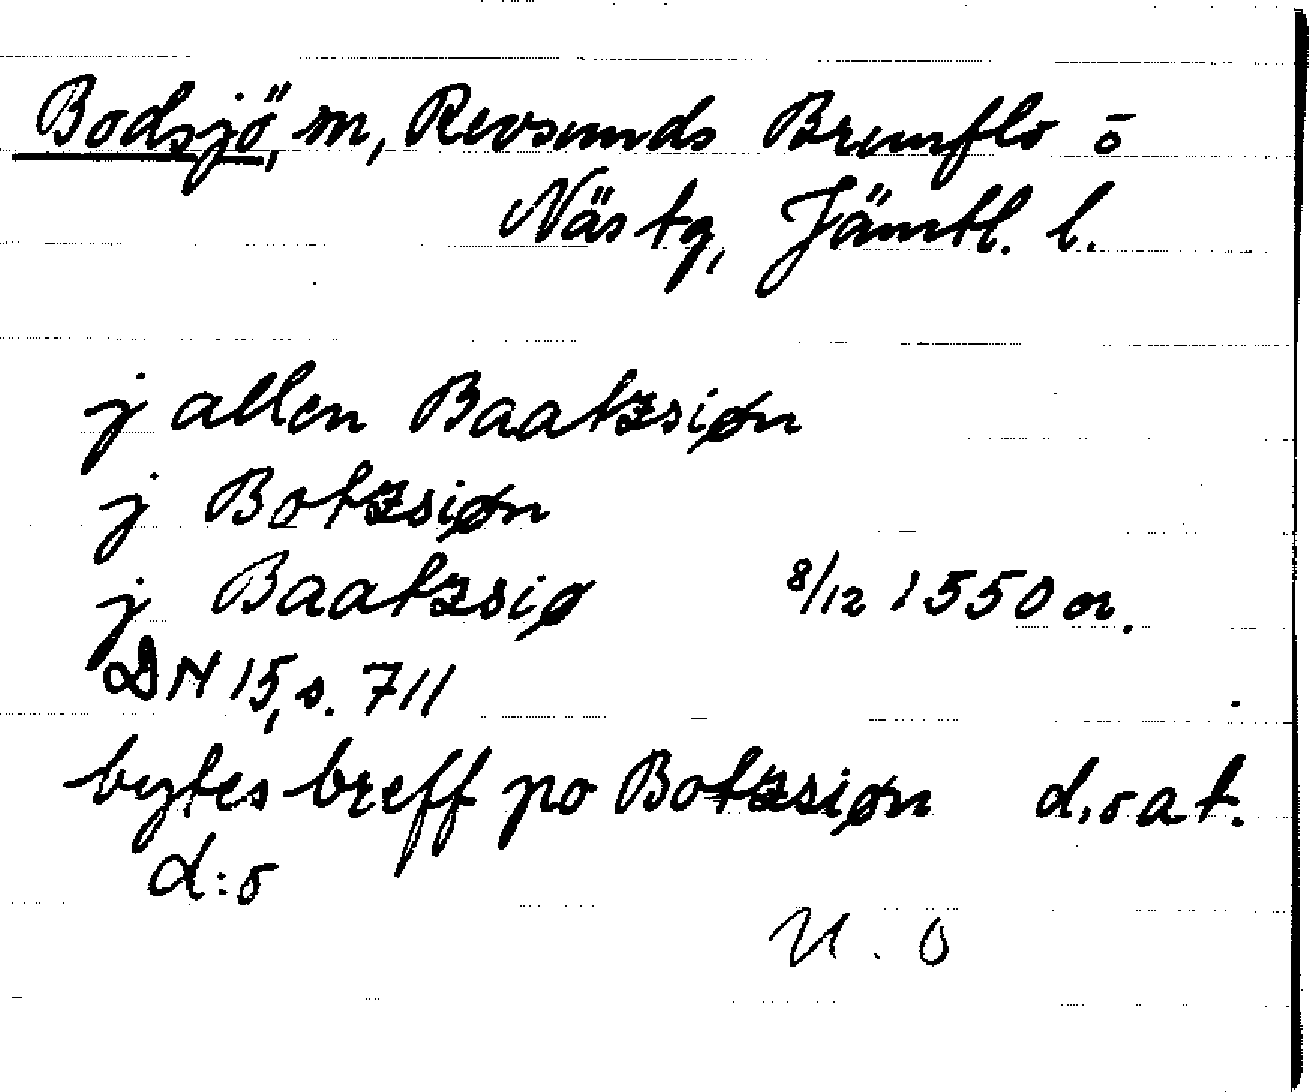 Bodsjö, sn, Revsunds Brunflo o
Näs tg, Jämtl. l.
j allen Baatzsiøn
j Botzsiøn
j Baatzsiø 8/12 1550 or.
DN 15, s. 711
bytes breff po Botzsiøn d. o a t.
d:o
U. O